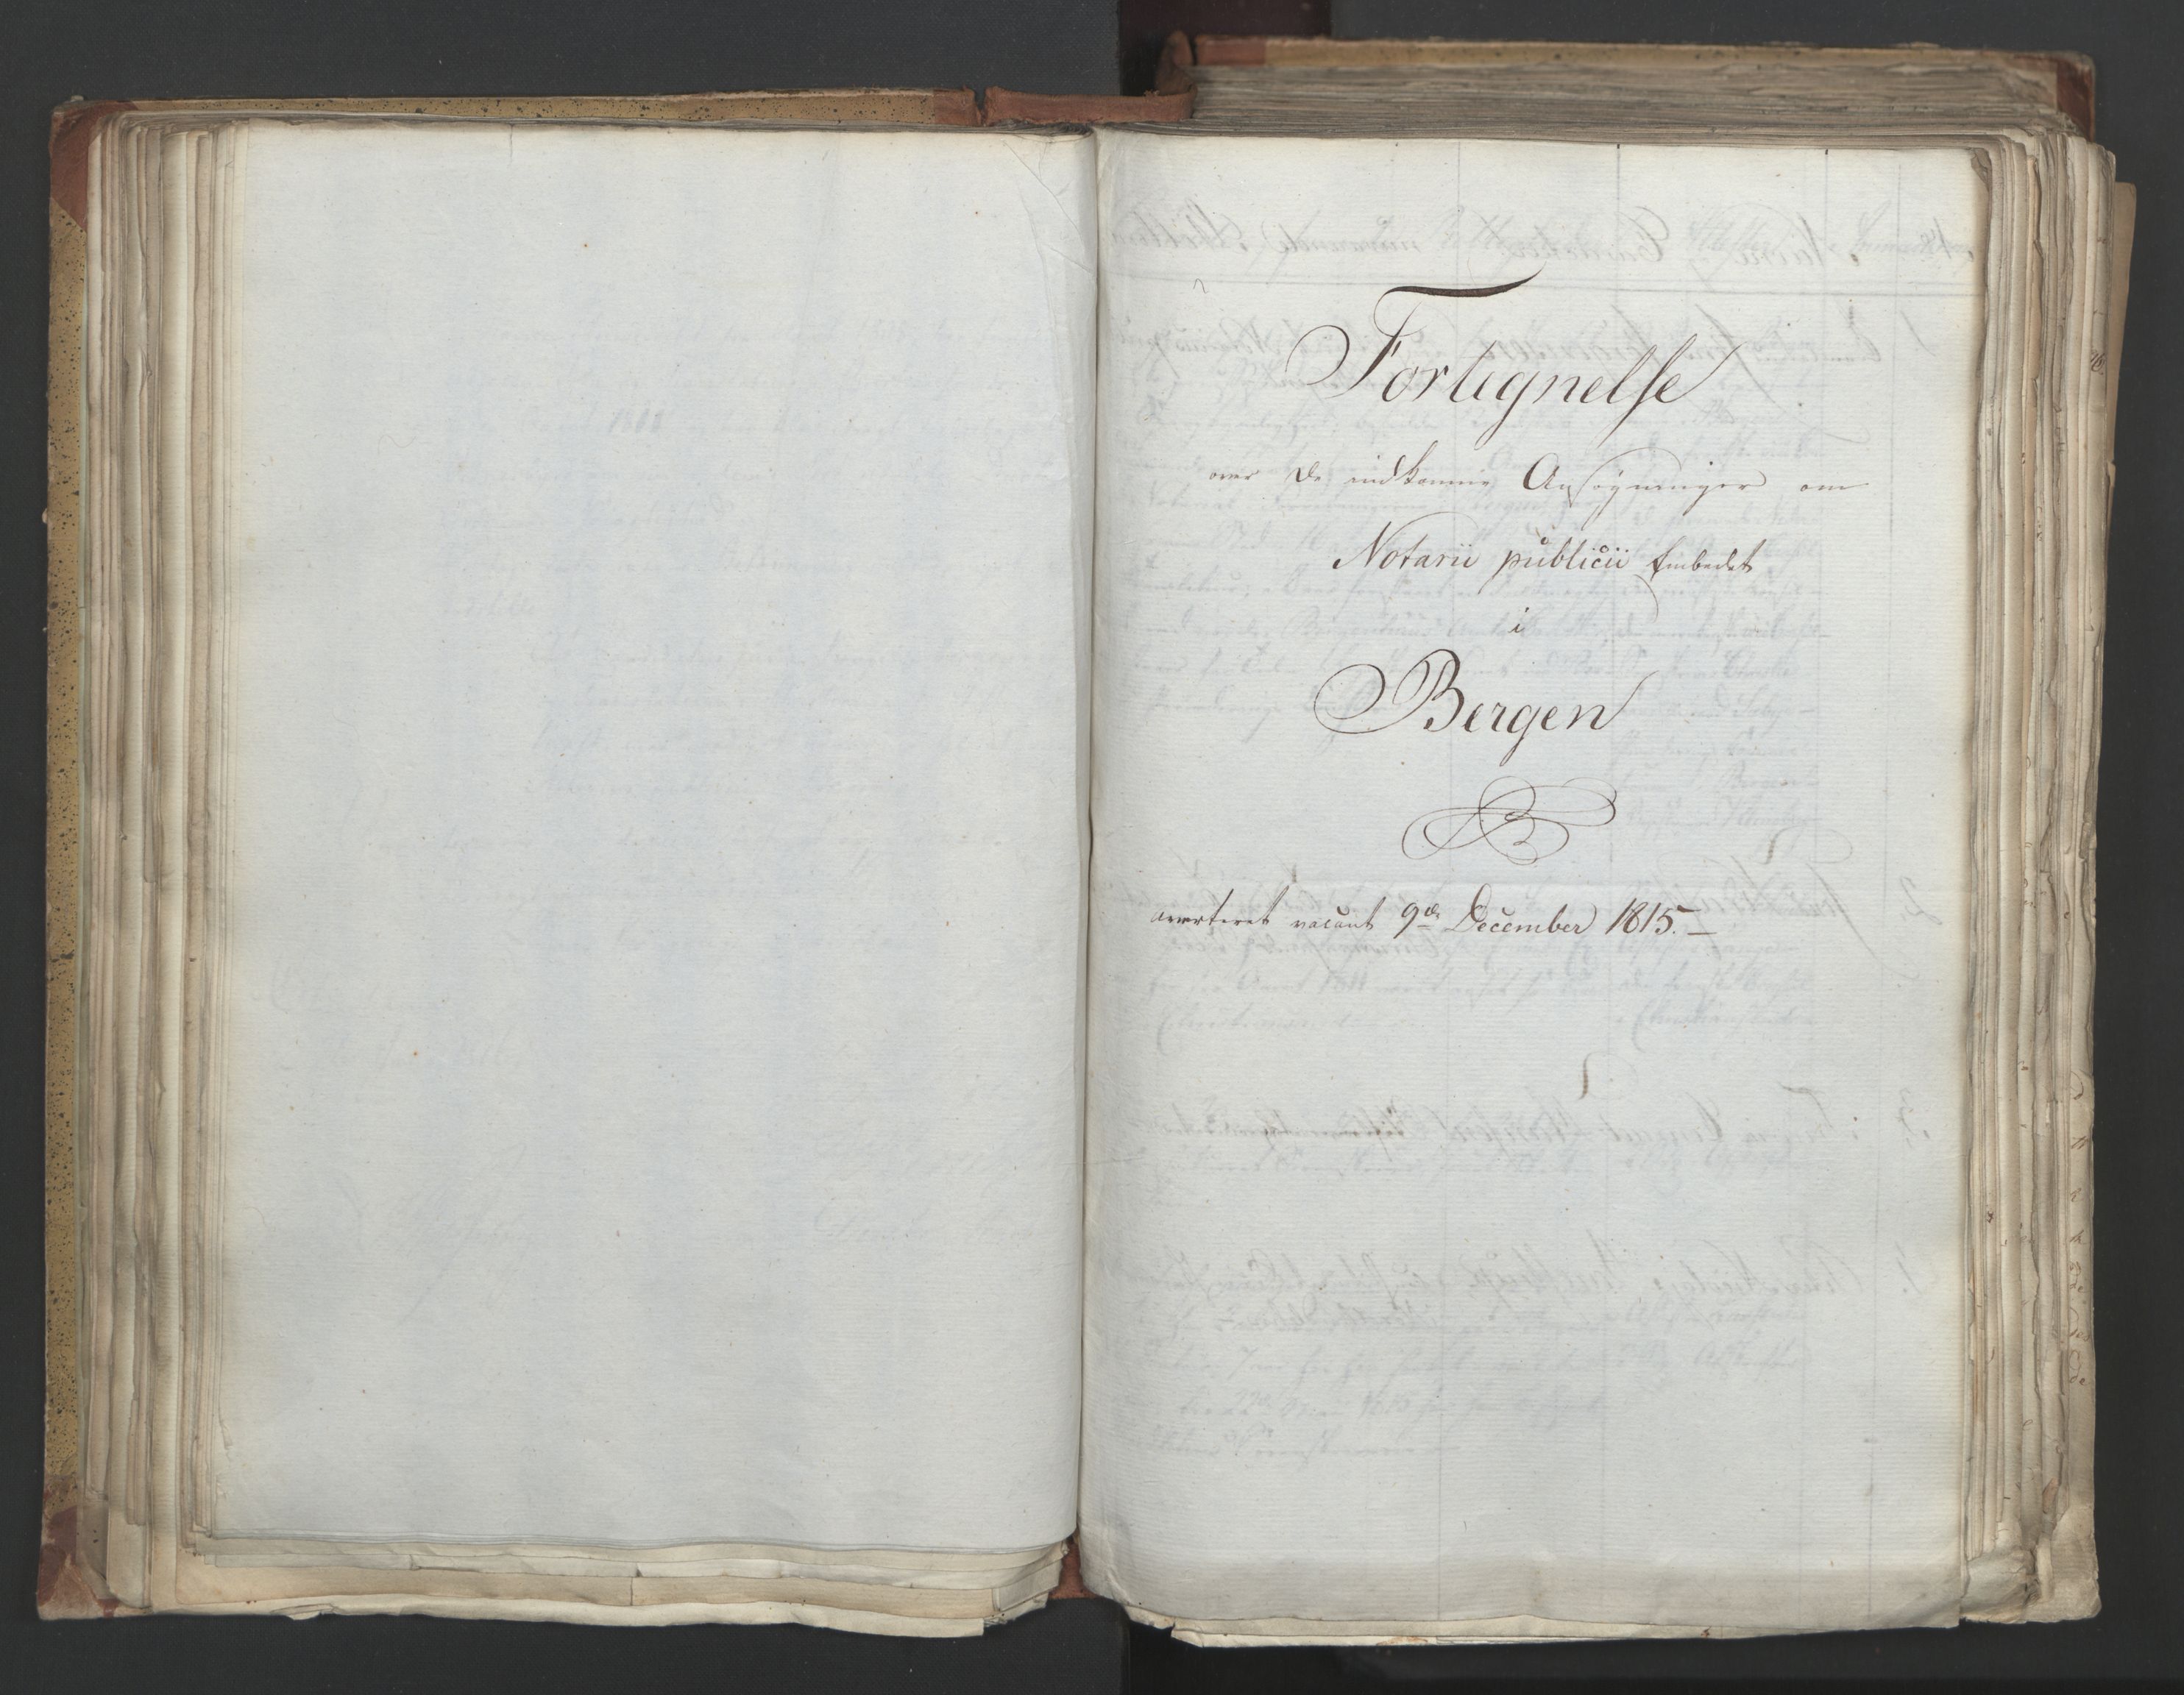 Fortegnelse
over de indkomne Ansøgninger om
Notarii publicii Embedet
i
Bergen
averteret vacant 9de December 1815.–